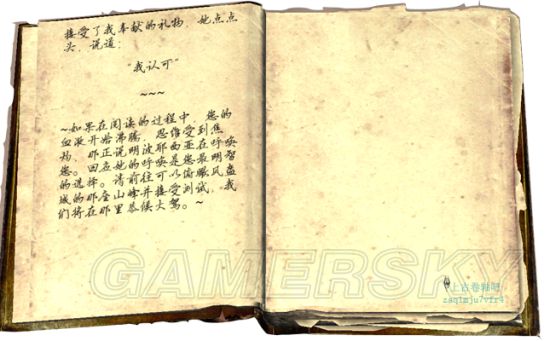 接受了我奉献的礼物，她点点
头，说道：
“我认可”
~~~
~如果在阅读的过程中，您的
血液开始沸腾，思维受到焦
灼，那正说明波耶西亚在呼唤
您。回应她的呼唤是您最明智
的选择。请前往可以俯瞰风盔
城的那座山峰并接受测试，我
们将在那里恭候大驾。~
GAMERSKY
上古卷轴吧
zaq1mju7vfr4